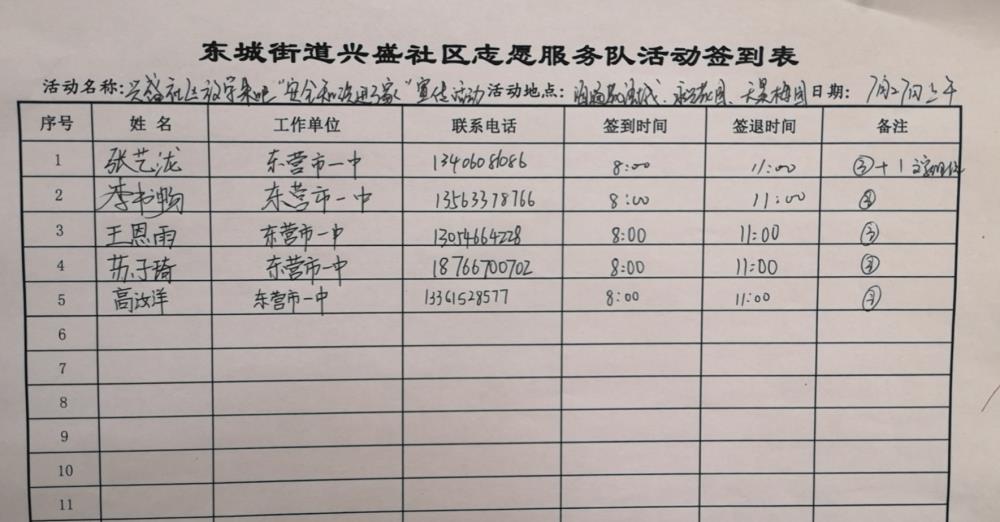 东城街道兴盛社区志愿服务队活动签到表
活动名称：兴盛社区放学来吧"安全知识进万家"宣传活动 活动地点： 日期：7月27日上午
序号 姓名 工作单位 联系电话 签到时间 签退时间 备注
1 张艺泷 东营市一中 13406081086 8:00 11:00 ③+1
2 李书畅 东营市一中 13563378766 8:00 11:00
3 王恩雨 东营市一中 13054664228 8:00 11:00 ③
4 苏子琦 东营市一中 18766700702 8:00 11:00
5 高汝洋 东营市一中 13361528577 8:00 11:00
6
7
8
9
10
11